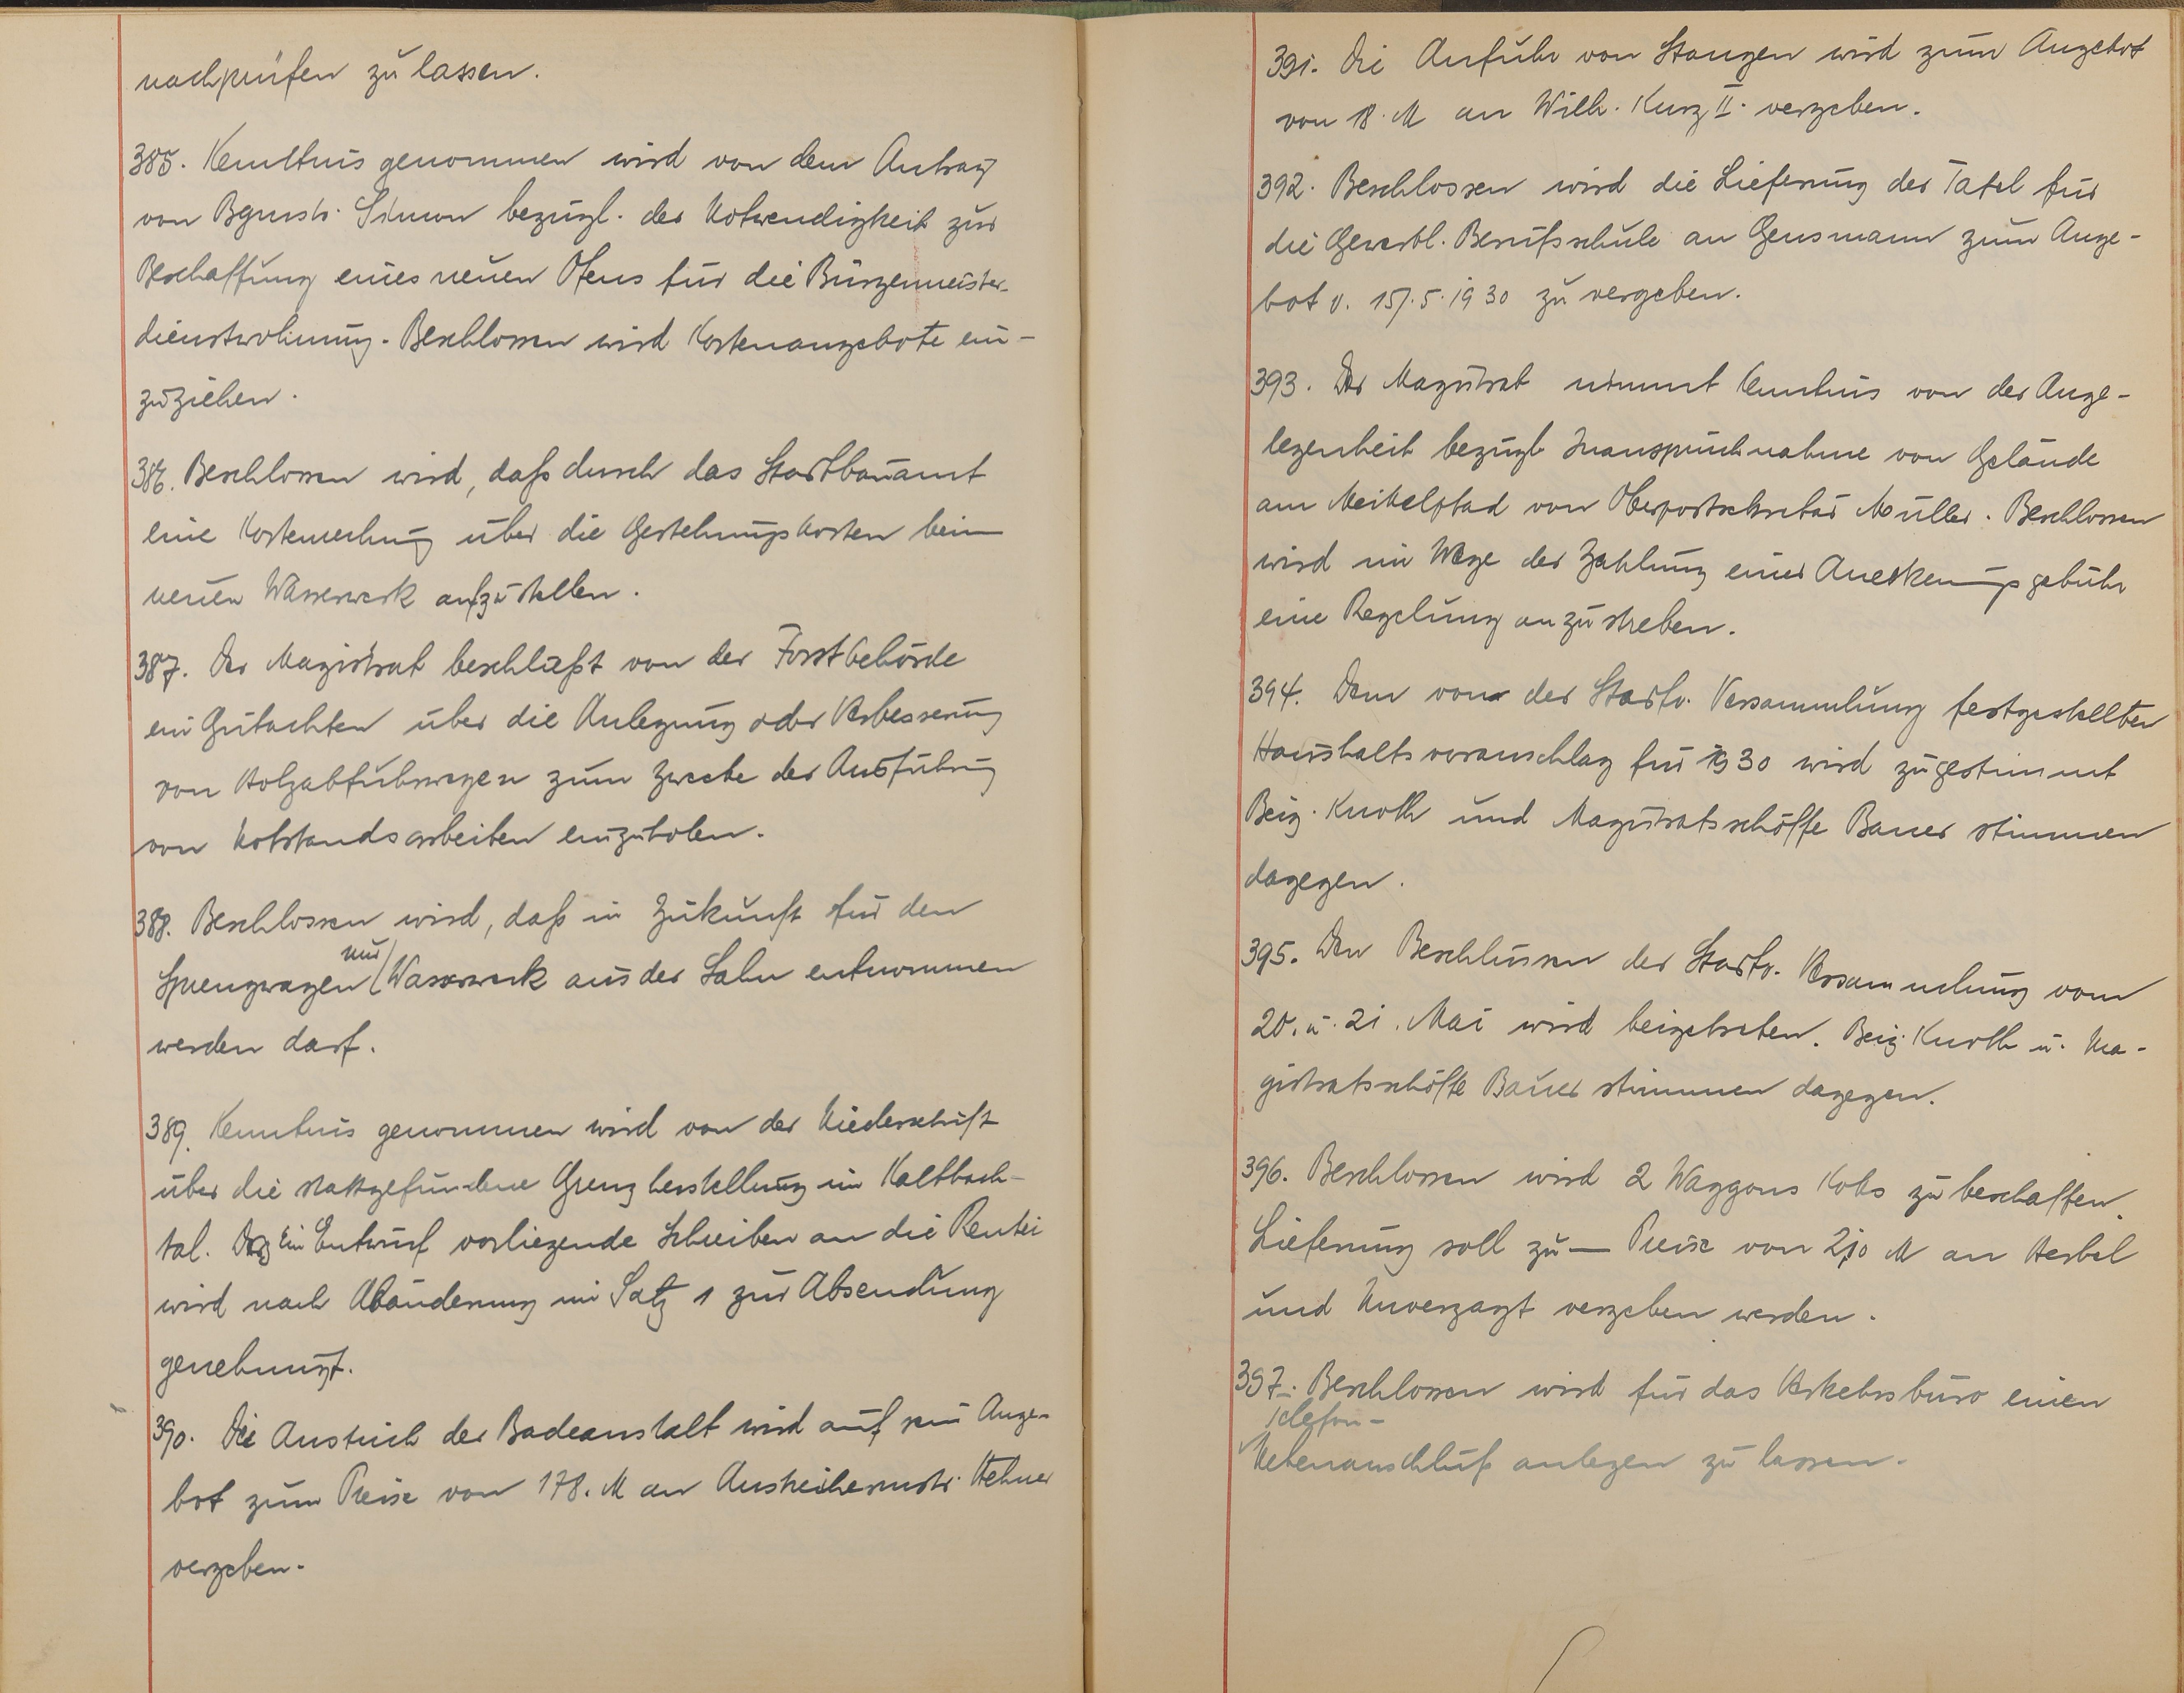 nachprüfen zu lassen.
385. Kenntnis genommen wird von dem Antrag
von Bgmstr. Simon bezügl. der Notwendigkeit zur
Beschaffung eines neuen Ofens für die Bürgermeister-
dienstwohnung. Beschlossen wird Kostenangebote ein-
zuziehen.
386. Beschlossen wird, daß durch das Stadtbauamt
eine Kostenrechnung über die Gestehungskosten beim
neuen Wasserwerk aufzustellen.
387. Der Magistrat beschließt von der Forstbehörde
ein Gutachten über die Anlegung oder Verbesserung
von Holzabfuhrwegen zum Zwecke der Ausführung
von Notstandsarbeiten einzuholen.
388. Beschlossen wird, daß in Zukunft für den
nur
Sprengwagen Wasserwerk aus der Lahn entnommen
werden darf.
389. Kenntnis genommen wird von der Niederschrift
über die stattgefundene Grenzherstellung im Kaltbach-
tal. Das im Entwurf vorliegende Schreiben an die Rentei
wird nach Abänderung im Satz 1 zur Absendung
genehmigt.
390. Die Anstrich der Badeanstalt wird auf sein Ange-
bot zum Preise von 178. M an Anstreichermstr. Hehner
vergeben.
391. Die Anfuhr von Stangen wird zum Angebot
von 18. M an Wilh. Kurz II. vergeben.
392. Beschlossen wird die Lieferung der Tafel für
die Gewerbl. Berufsschule an Gensmann zum Ange-
bot v. 15.5.1930 zu vergeben.
393. Der Magistrat nimmt Kenntnis von der Ange-
legenheit bezügl. Inanspruchnahme von Gelände
am Meikelpfad von Oberpostsekretär Müller. Beschlossen
wird im Wege der Zahlung einer Anerkennungsgebühr
eine Regelung anzustreben.
394. Dem von der Stadtv. Versammlung festgestellten
Haushaltsvoranschlag für 1930 wird zugestimmt
Beig. Knoth und Magistratsschöffe Bauer stimmen
dagegen.
395. Den Beschlüssen der Stadtv. Versammlung vom
20. u. 21. Mai wird beigetreten. Beig. Knoth u. Ma-
gistratsschöffe Bauer stimmen dagegen.
396. Beschlossen wird 2 Waggons Koks zu beschaffen.
Lieferung soll zum Preise von 2,10 M an Herbel
und Unverzagt vergeben werden.
397. Beschlossen wird für das Verkehrsbüro einen
Telefon-
Nebenanschluß anlegen zu lassen.